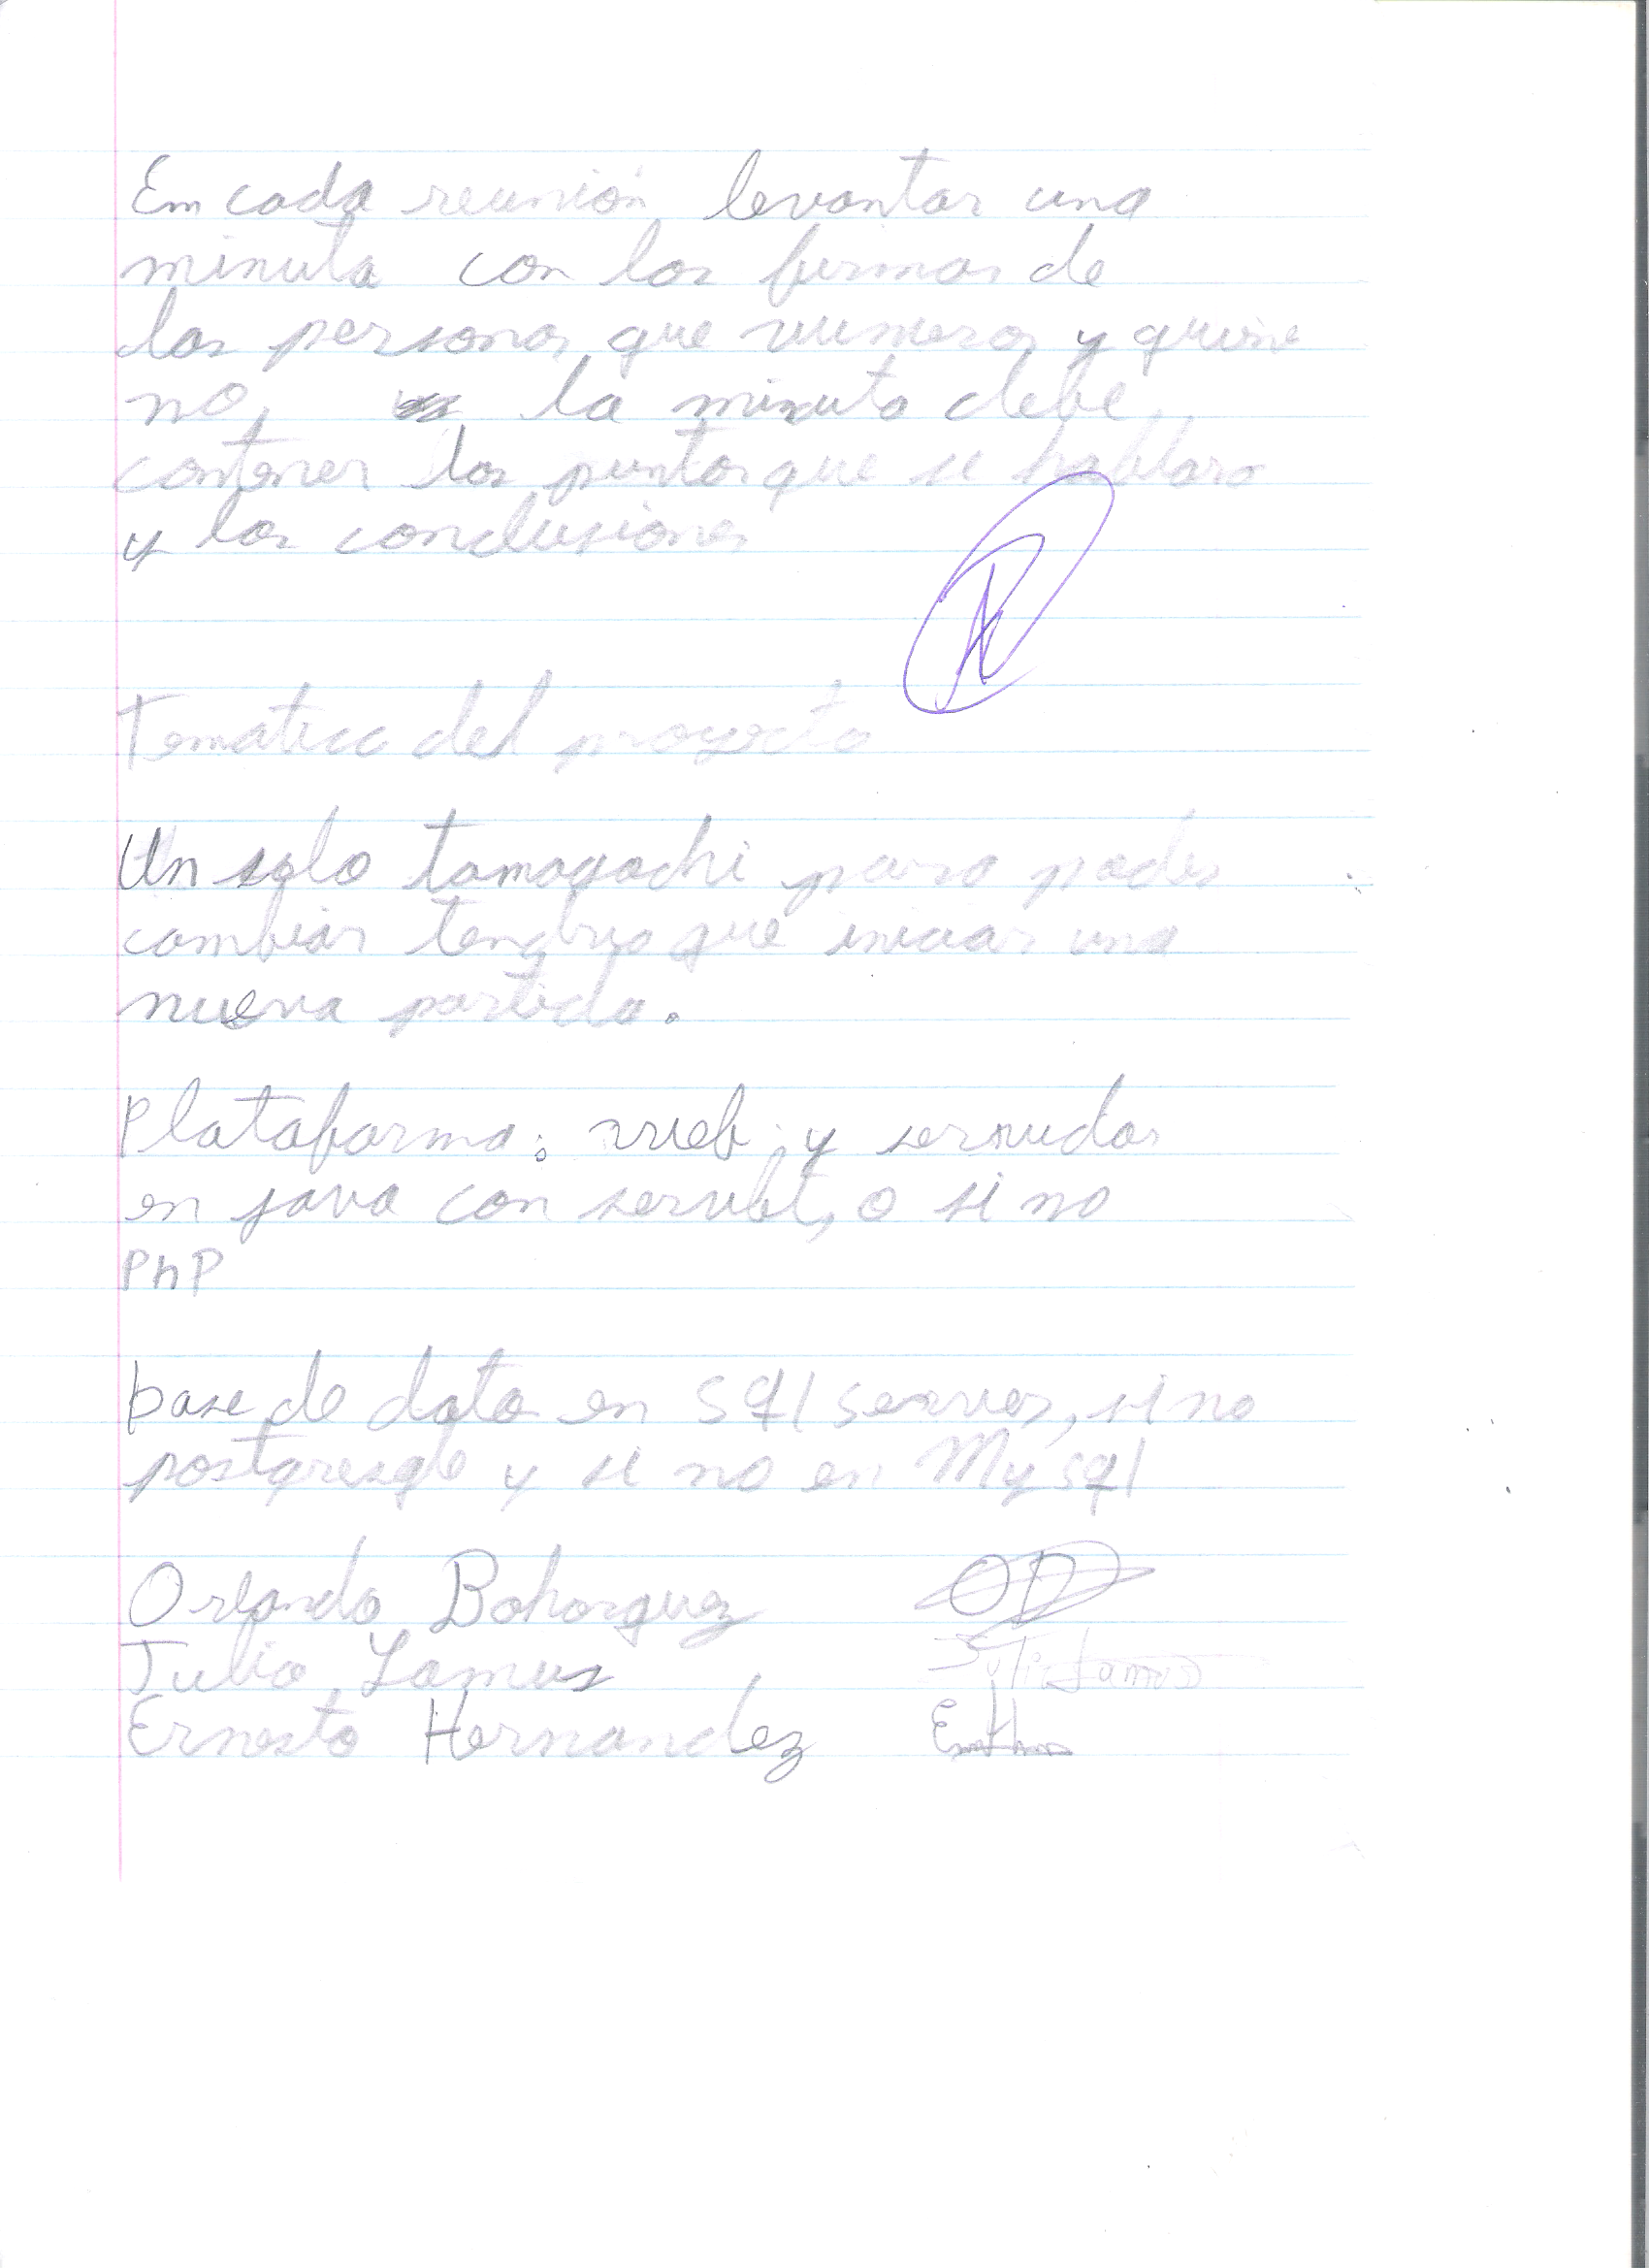 En cada reunión levantar una
minuta con las firmas de
las personas que vinieron y quine
no, la minuta debe
contener los puntos que se hablaro
y las conclusiones
Tematica del proyecto
Un solo tamagochi para poder
cambiar tendria que iniciar una
nueva partida.
Plataforma: web y servidor
en java con servlet, o si no
PhP
base de dato en sql server, si no
postgresql y si no en MySql
Orlando Bohorquez OB
Julio Lamus Julio Lamus
Ernesto Hernandez